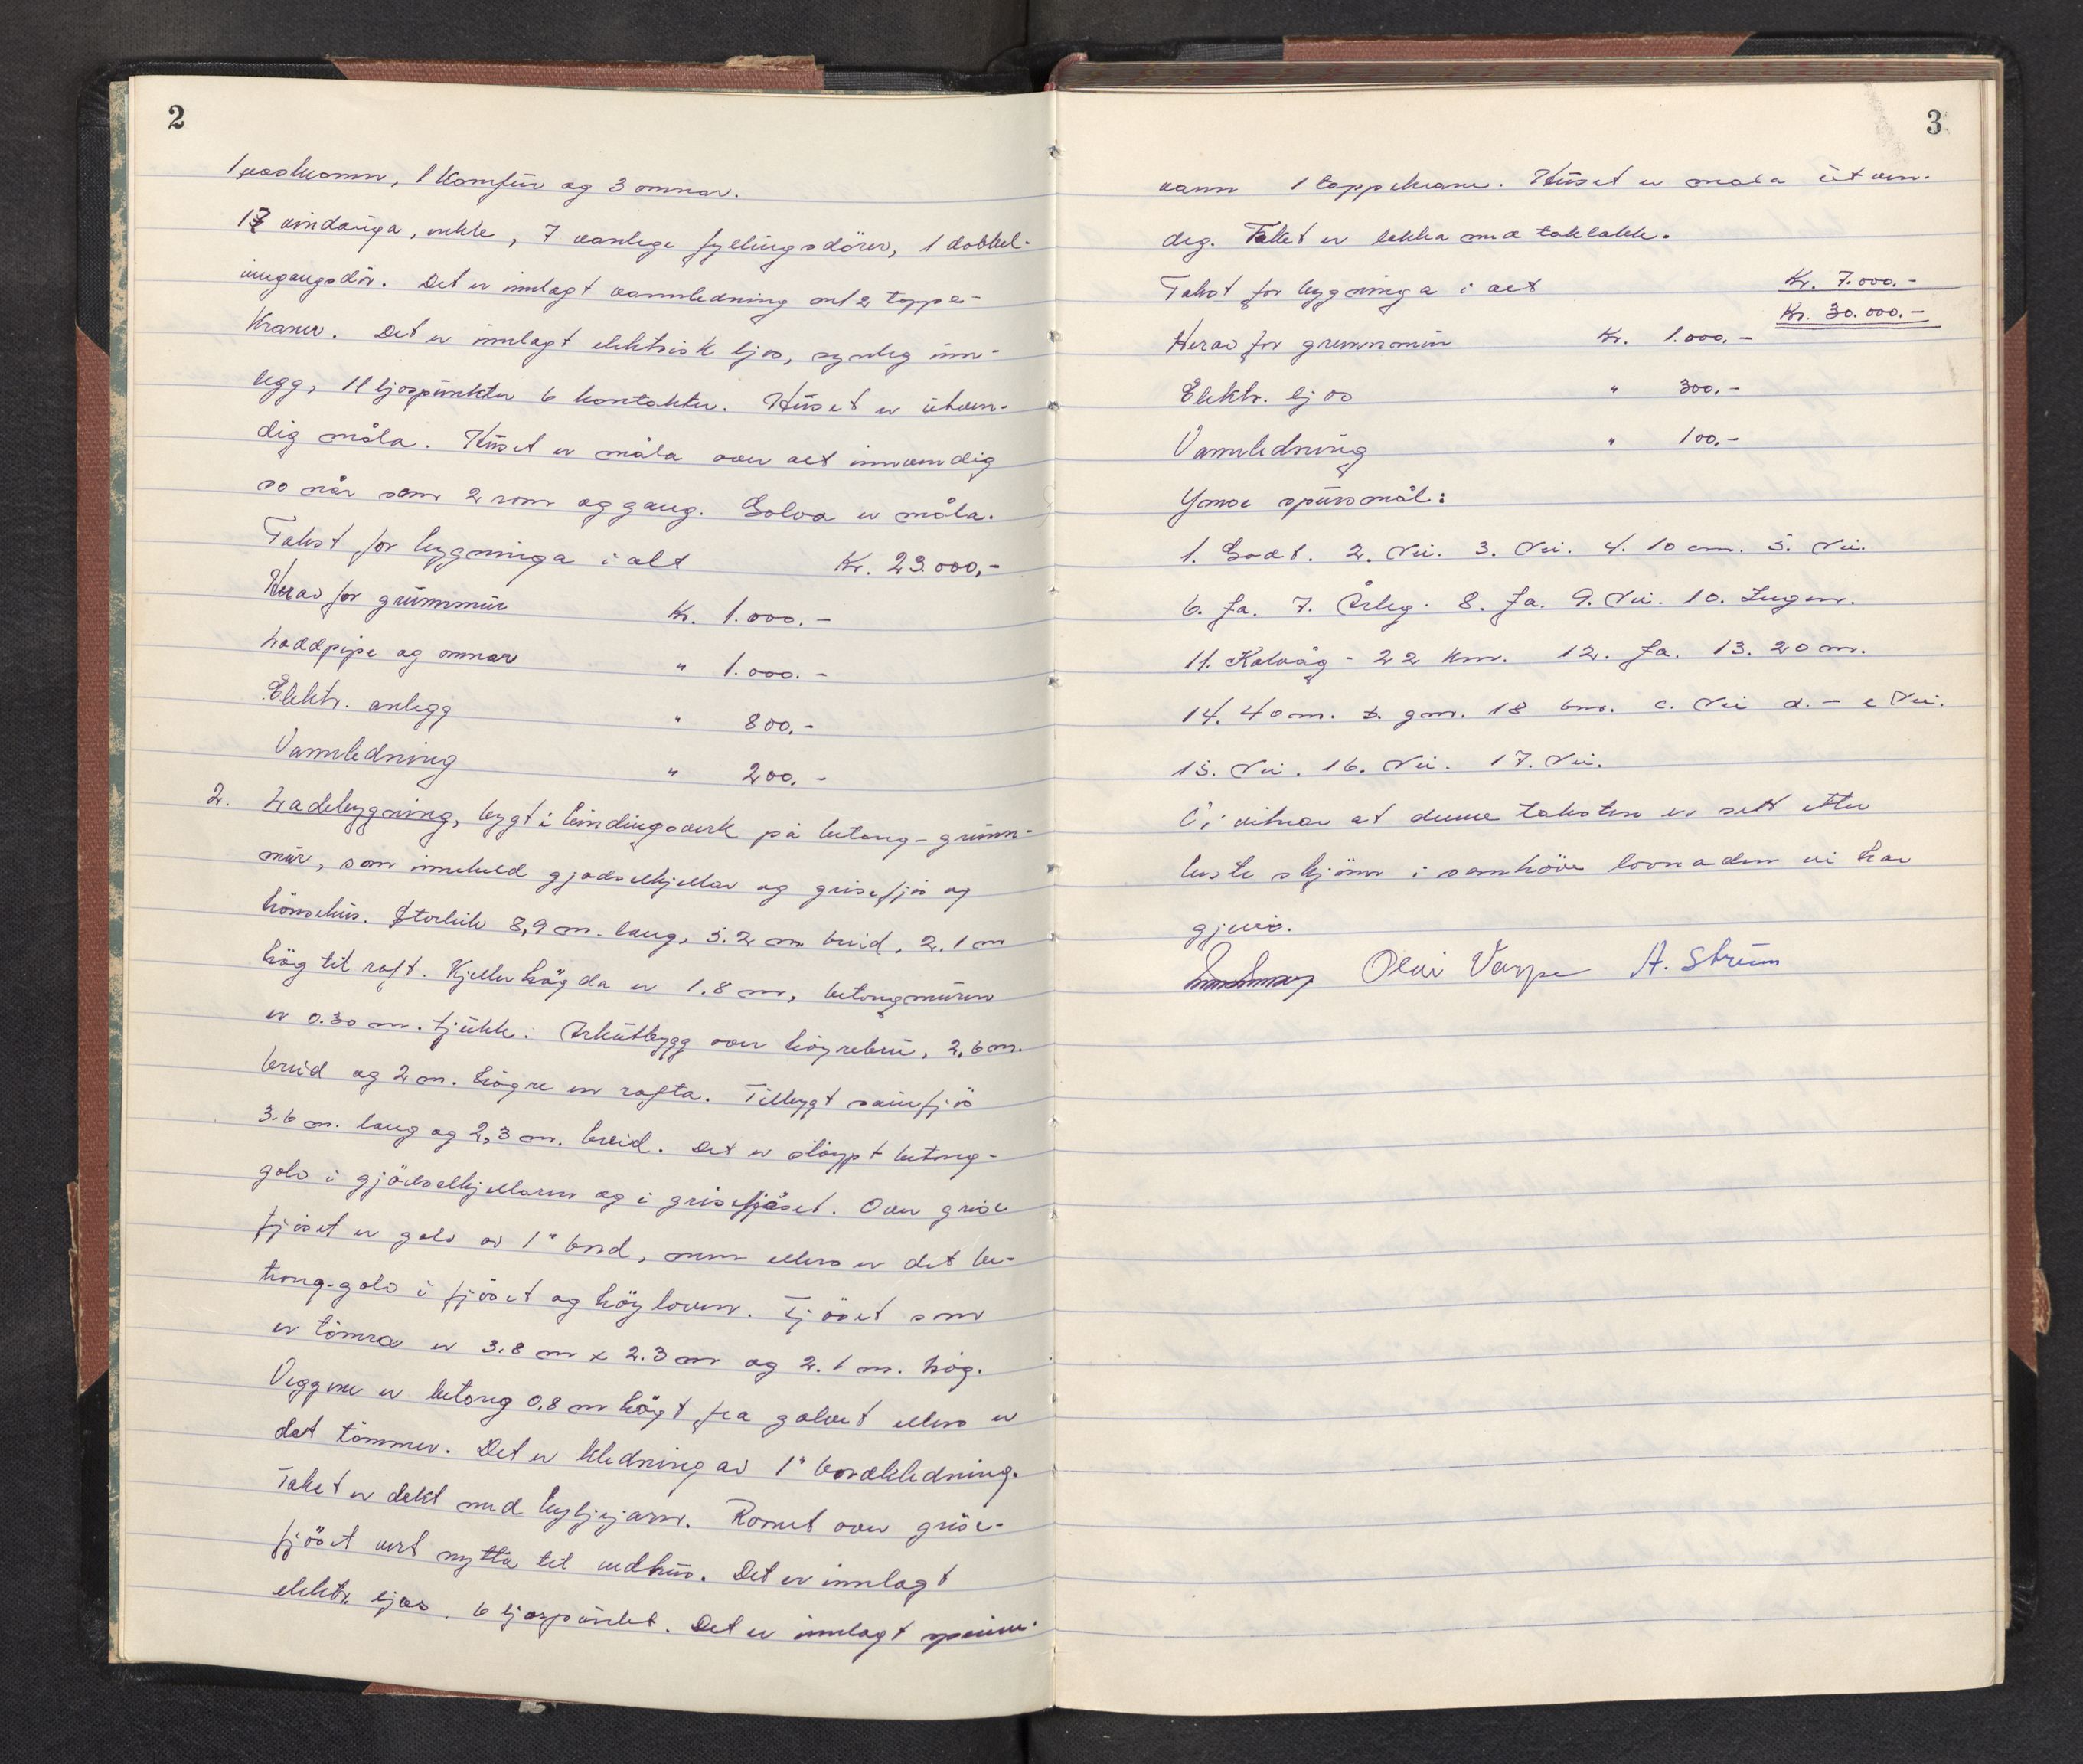 2
1 vaskomn, 1 Komfür og 3 omnar.
17 vindauga, enkle, 7 vanlege fyllingsdörer, 1 dobbel-
inngangsdör. Det er innlagt vannledning m/ 2 tappe-
kraner. Det er innlagt elektrisk ljos, synleg inn-
legg, 11 ljospunkter 6 kontakter. Huset er utven-
dig måla. Huset er måla over alt innvendig
so når som 2 rom og gang. Golva er måla.
Takst for bygninga i alt Kr. 23.000,-
Herav for grunnmur Kr. 1.000.-
Laddpipe og omnar " 1.000.-
Elektr. anlegg " 800.-
Vannledning " 200.-
2. Ladebygning, bygt i bindingsverk på betong-grunn-
mur, som inneheld gjødselkjellar og grisefjös og
hönsehus. Storleik 8,9 m. lang, 5.2 m breid, 2.1 m
hög til raft. Kjellerhögda er 1.8 m, betongmuren
er 0.30 m. tjukk. Arkutbygg over höyrebru, 2,6 m.
breid og 2 m. högre en rafta. Tilbygt sauefjös
3.6 m. lang og 2,3 m. breid. Det er stöypt betong-
golv i gjödselkjellaren og i grisefjöset. Over grise
fjöset er golv av 1" bord, men ellers er det be-
tong-golv i fjöset og höyloven. Fjöset som
er tömra er 3.8 m x 2.3 m og 2.1 m. hög.
Veggene er betong 0.8 m högt fra golvet ellers er
det tömmer. Det er kledning av 1" bordkledning.
Taket er dekt med bylgjejarn. Romet over grise-
fjöset vert nytta til vedhus. Det er innlagt
elektr. ljos. 6 ljospunkt. Det er innlagt
3
vann 1 tappekrane. Huset er måla utven-
dig. Taket er lakka med taklakk.
Takst for bygninga i alt Kr. 7.000.-
Kr. 30.000.-
Herav for grunnmur Kr. 1.000.-
Elektr. ljos " 300.-
Vannledning " 100.-
Ymse spursmål:
1. Godt. 2. Nei. 3. Nei. 4. 10 cm. 5. Nei.
6. Ja. 7. Årleg. 8. Ja. 9. Nei. 10. Ingen.
11. Kalvåg - 22 km. 12. Ja. 13. 20 m.
14. 40 m. b. gm. 18 bm. c. Nei d. - e Nei.
15. Nei. 16. Nei. 17. Nei.
Vi vitnar at denne taksten er sett etter
beste skjönn i samhöve lovnaden vi har
gjeve.
Olai Varpe A. Strüm